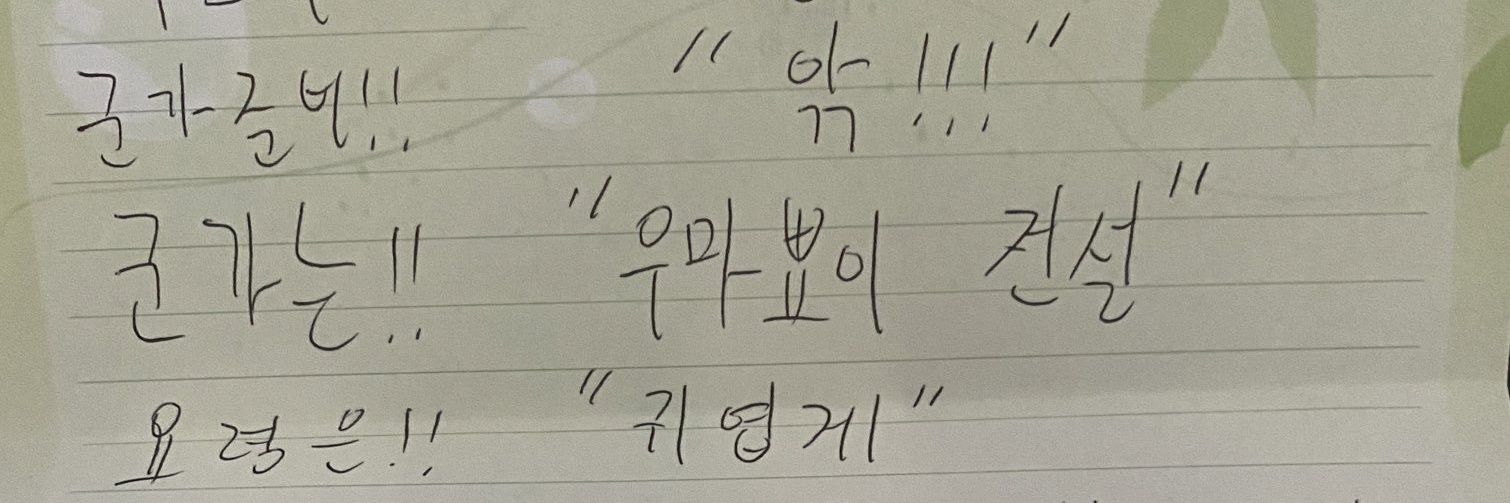 군가준비!! "앆!!!"
군가는!! "우마뾰이 전설"
요령은!! "귀엽게"